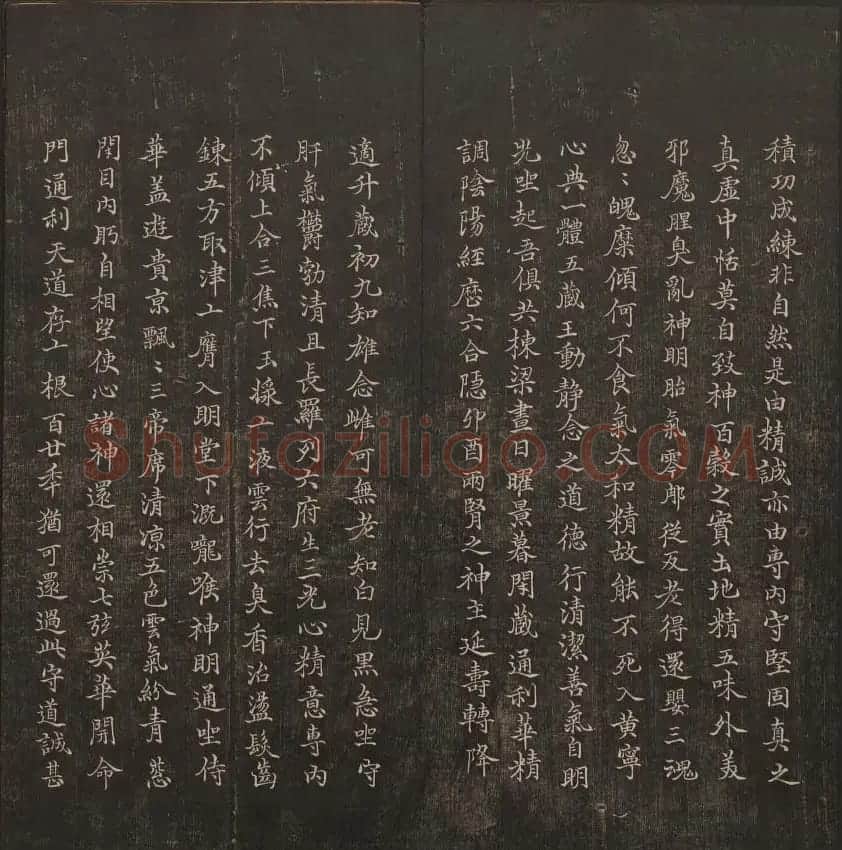 積功成練非自然是由精誠亦由專內守堅固真之
真虛中恬莫自致神百穀之實土地精五味外美
邪魔腥臭亂神明胎氣零那從反老得還嬰三魂
忽〻魄糜傾何不食氣太和精故能不死入黄寧
心典一體五藏王動静念之道德行清潔善氣自明
光坐起吾俱共棟梁晝日曜景暮閇藏通利華精
調陰陽經歷六合隱卯酉兩腎之神主延壽轉降
適升藏初九知雄念雌可無老知白見黑急坐守
肝氣欝勃清且長羅列六府生三光心精意專內
不傾上合三焦下玉漿亡液雲行去臭香治盪髮齒
鍊五方取津亡膺入明堂下溉嚨喉神明通坐侍
華盖遊貴京飄〻三帝席清凉五色雲氣紛青葱
閇目內眄自相望使心諸神還相崇七玹英華開命
門通利天道存亡根百廿年猶可還過此守道誠甚
Shufaziliao.COM